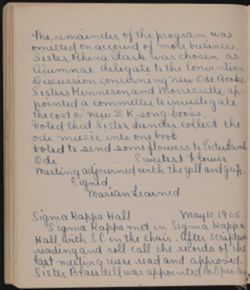 The remainder of the program was
omitted on account of more business.
Sister Rhena Clark was chosen as
Alumnae delegate to the Convention
Discussion concerning new Ode Books
Sisters Kennerson and Morrissette ap-
pointed a committee to investigate
the cost of new Σ K song-books.
Voted that Sister Lander collect the
ode music into one book
Voted to send some flowers to Sister
Ode Sweetest Flower
Meeting adjourned with the yell and grip.
Signed,
Marian Learned
Sigma Kappa Hall May 10, 1905
Sigma Kappa met in Sigma Kappa
Hall with S.L. in the chair. After scripture
reading and roll-call the records of the
last meeting were read and approved.
Sister Blaisdell was appointed